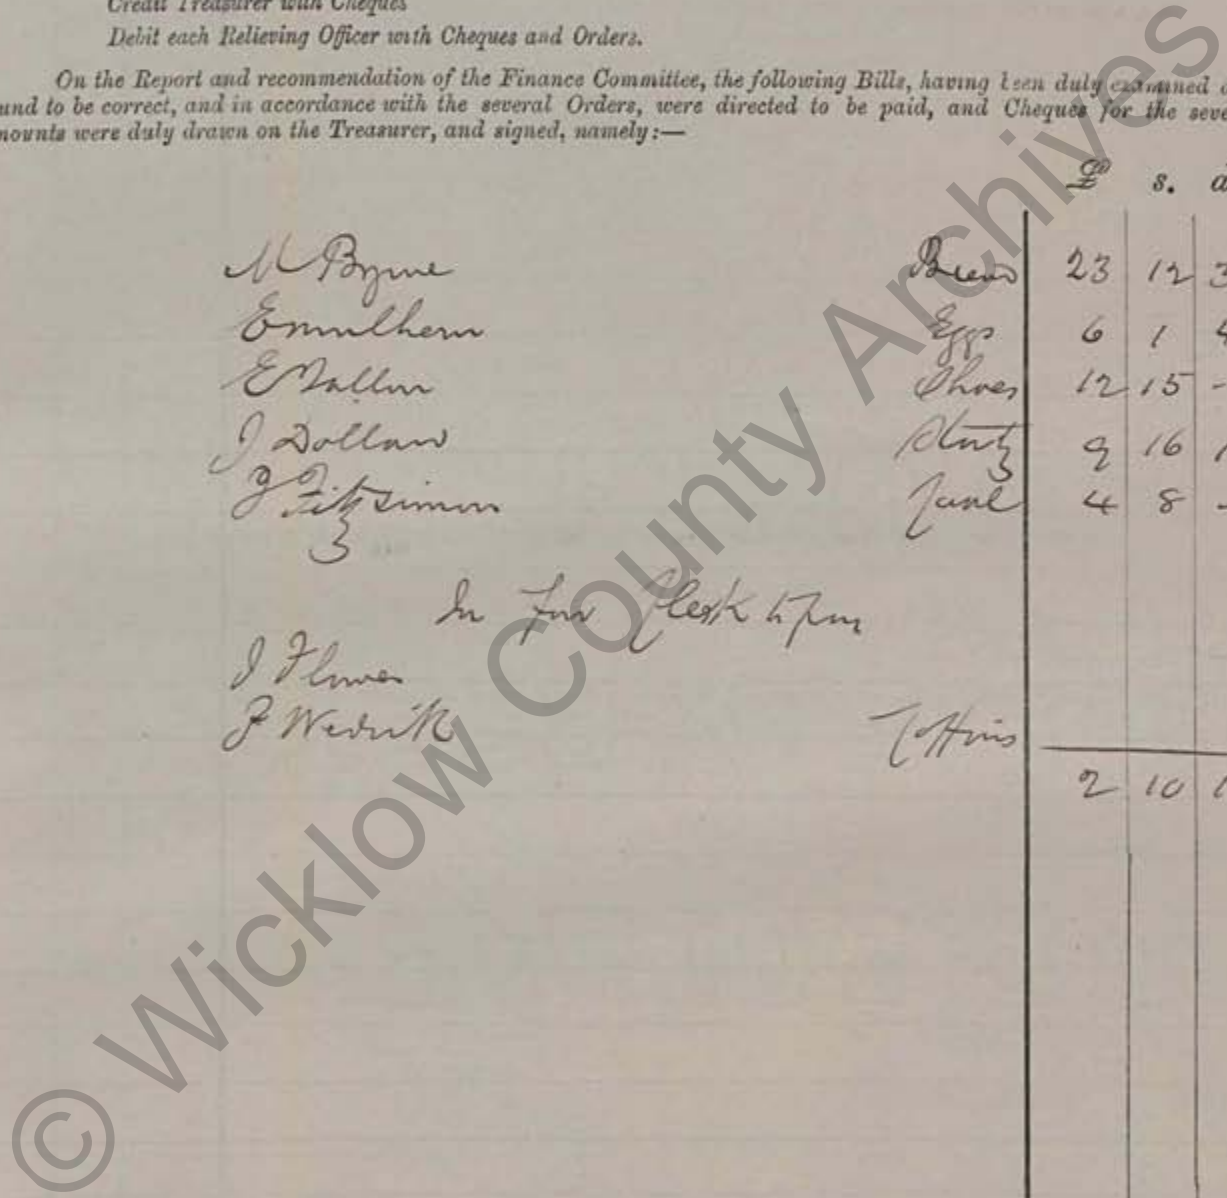 Credit Treasurer with Cheques
Debit each Relieving Officer with Cheques and Orders.
On the Report and recommendation of the Finance Committee, the following Bills, having been duly examined
und to be correct, and in accordance with the several Orders, were directed to be paid, and Cheques for the seve
mounts were duly drawn on the Treasurer, and signed, namely:—
£ s. d
M Byrne 23 12 3
E Mulhern Eggs 6 1 4
E Shoes 12 15 -
J Dollard 9 16 1
J Fitzsimon 4 8 -
In Clerk
J
J Coffins
2 10 1
© Wicklow County Archives